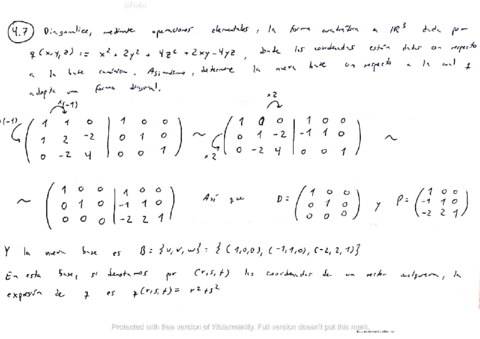 4.7 Diagonalice, mediante operaciones elementales, la forma cuadrática a ℝ³ dada por
q(x,y,z) := x² + 2y² + 4z² + 2xy - 4yz, donde las coordenadas están dadas con respecto
a la base canónica. Asimismo, determine la nueva base con respecto a la cual q
adopta una forma diagonal.
·(-1) ·2
·(-1) (1 1 0 | 1 0 0) (1 0 0 | 1 0 0)
(1 2 -2 | 0 1 0) ~ (0 1 -2 | -1 1 0) ~
(0 -2 4 | 0 0 1) ·2 (0 -2 4 | 0 0 1)
(1 0 0 | 1 0 0) (1 0 0) (1 0 0)
~ (0 1 0 | -1 1 0) Así que D= (0 1 0) y P= (-1 1 0)
(0 0 0 | -2 2 1) (0 0 0) (-2 2 1)
Y la nueva base es B = {u, v, w} = {(1,0,0), (-1,1,0), (-2,2,1)}
En esta base, si denotamos por (r,s,t) las coordenadas de un vector cualquiera, la
expresión de q es q(r,s,t) = r² + s²
Protected with free version of Watermarkly. Full version doesn't put this mark.